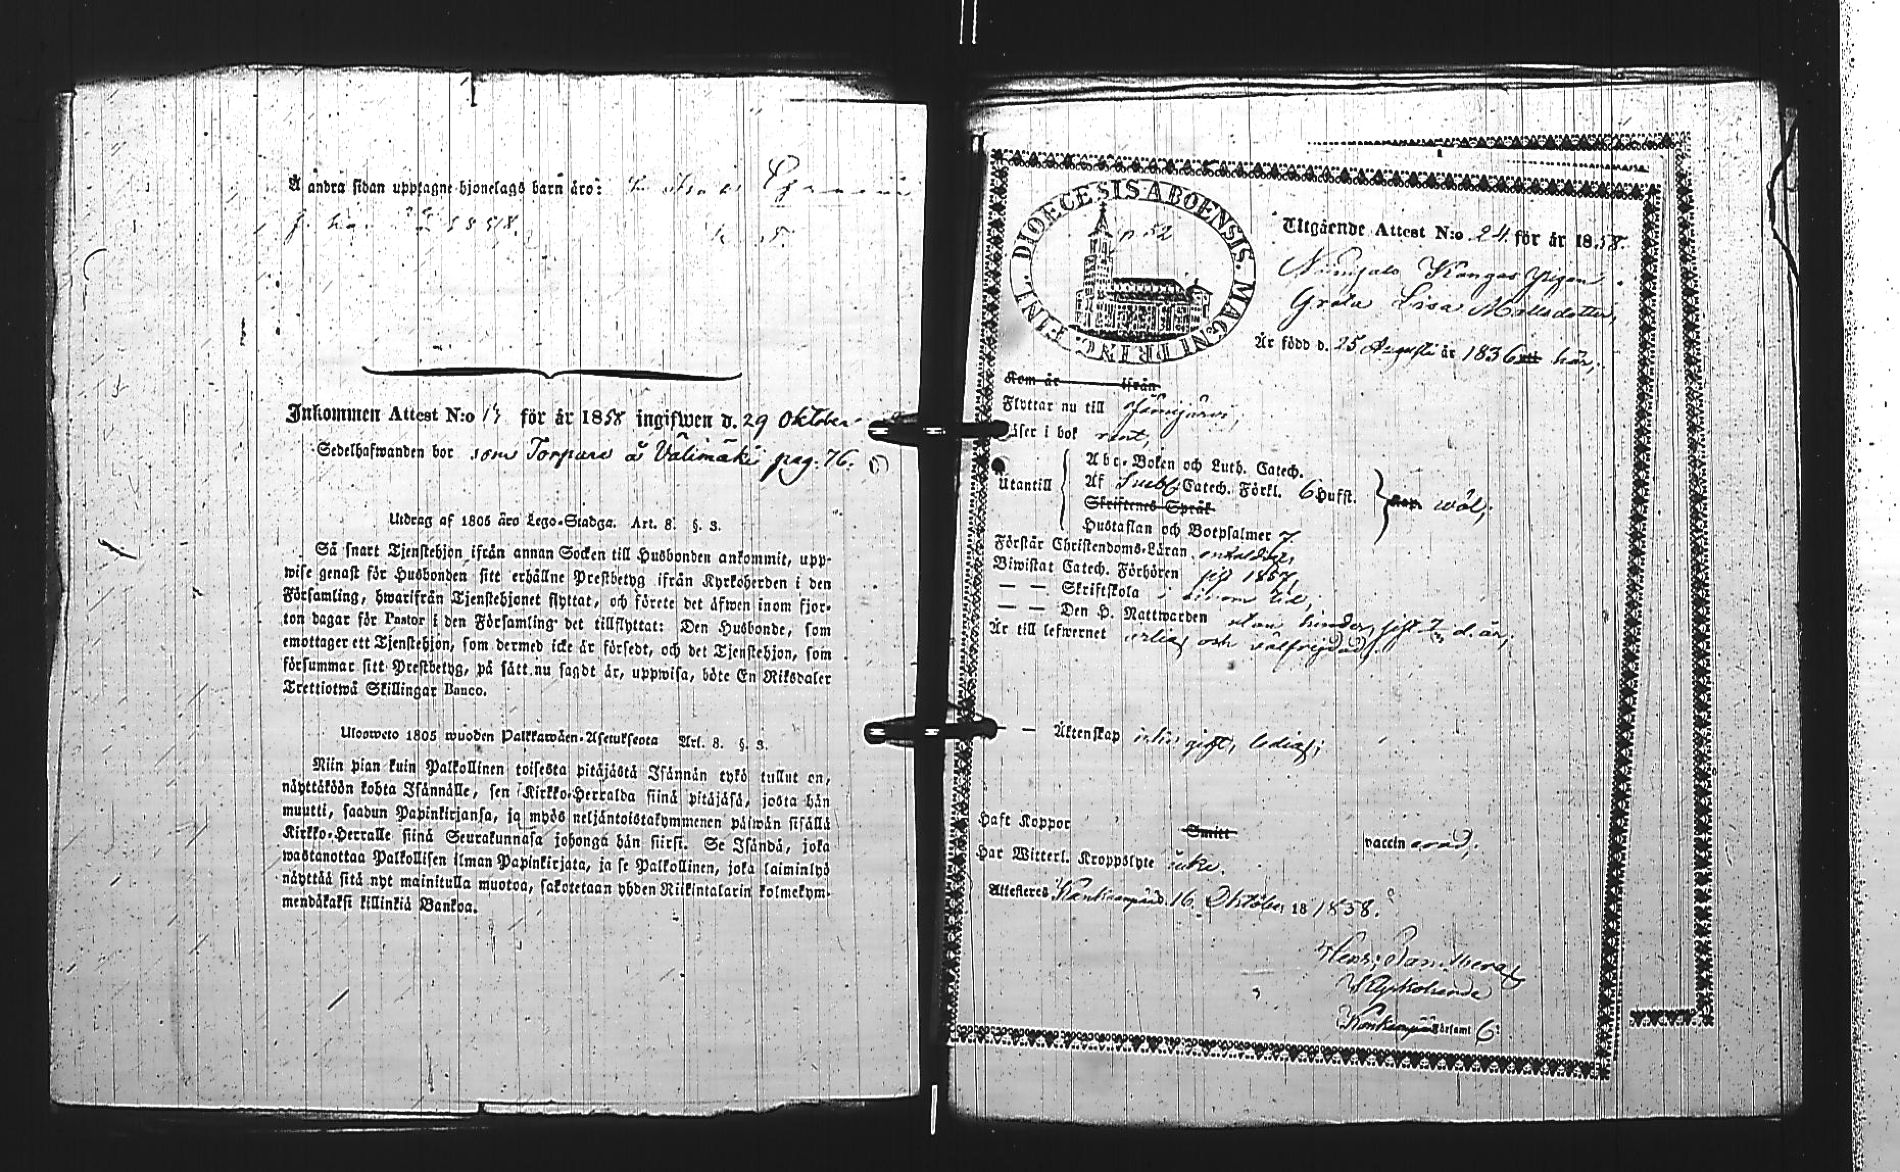 Å andra sidan upptagne hjonelags barn äro:
Inkommen Attest N:o 13 för år 1858 ingifwen d. 29 Oktober
Sedelhafwanden bor som Torpare å Välimäki pag. 76.
Utdrag af 1805 års Lego-Stadga. Art. 8. §. 3.
Så snart Tjenstehjon ifrån annan Socken till Husbonden ankommit, upp-
wise genast för Husbonden sitt erhållne Prestbetyg ifrån Kyrkoherden i den
Församling, hwarifrån Tjenstehjonet flyttat, och förete det äfwen inom fjor-
ton dagar för Pastor i den Församling det tillflyttat: Den Husbonde, som
emottager ett Tjenstehjon, som dermed icke är försedt, och det Tjenstehjon, som
försummar sitt Prestbetyg, på sätt nu sagdt är, uppwisa, böte En Riksdaler
Trettiotwå Skillingar Banco.
Ulosweto 1805 wuoden Palkkawäen-Asetuksesta Art. 8. §. 3.
Niin pian kuin Palkollinen toisesta pitäjästä Isännän tykö tullut on,
näyttäköön kohta Isännälle, sen Kirkko-Herralda siinä pitäjäsä, josta hän
muutti, saadun Papinkirjansa, ja myös neljäntoistakymmenen päiwän sisällä
Kirkko-Herralle siinä Seurakunnasa johonga hän siirsi. Se Isändä, joka
wastanottaa Palkollisen ilman Papinkirjata, ja se Palkollinen, joka laiminlyö
näyttää sitä nyt mainitulla muotoa, sakotetaan yhden Riikintalarin kolmekym-
mendäkaksi killinkiä Bankoa.
DIOECESIS ABOENSIS. MAGNI PRINC. FINL.
p. 52
Utgående Attest N:o 24 för år 1858.
Kangas pigan
Greta Lisa Mattsdotter,
Är född d. 25 Augusti år 1836 här,
Kom år ifrån
Flyttar nu till Jämijärvi,
Läser i bok rent,
Utantill
Abc-Boken och Luth. Catech.
Af Svebl. Catech. Förkl. 6 Hufst.
Skriftenes Språk
Hustaflan och Botpsalmer 7
wäl,
Förstår Christendoms-Läran enfaldigt,
Biwistat Catech. Förhören sist 1857,
— — Skriftskola i sinom tid,
— — Den H. Nattwarden utan hinder, sist d. år,
Är till lefwernet ärlig och välfrejdad,
— — Äktenskap icke gift, ledig;
Haft Koppor
Smitt
vaccinerad;
Har Witterl. Kroppslyte icke.
Attesteras Kankaanpää d. 16 Oktober 18 1858.
Kyrkoherde
Kankaanpää Församl